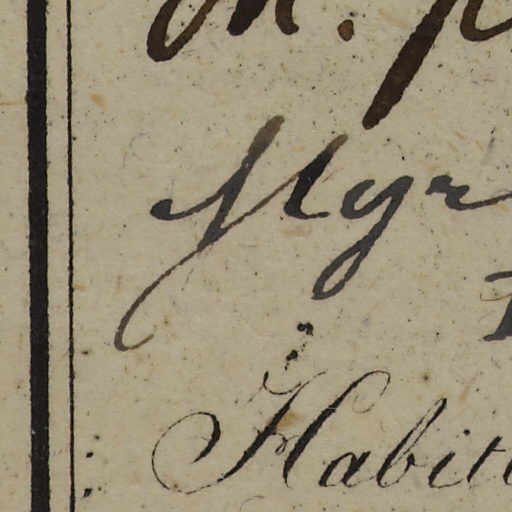 M. p
Myr
Habit